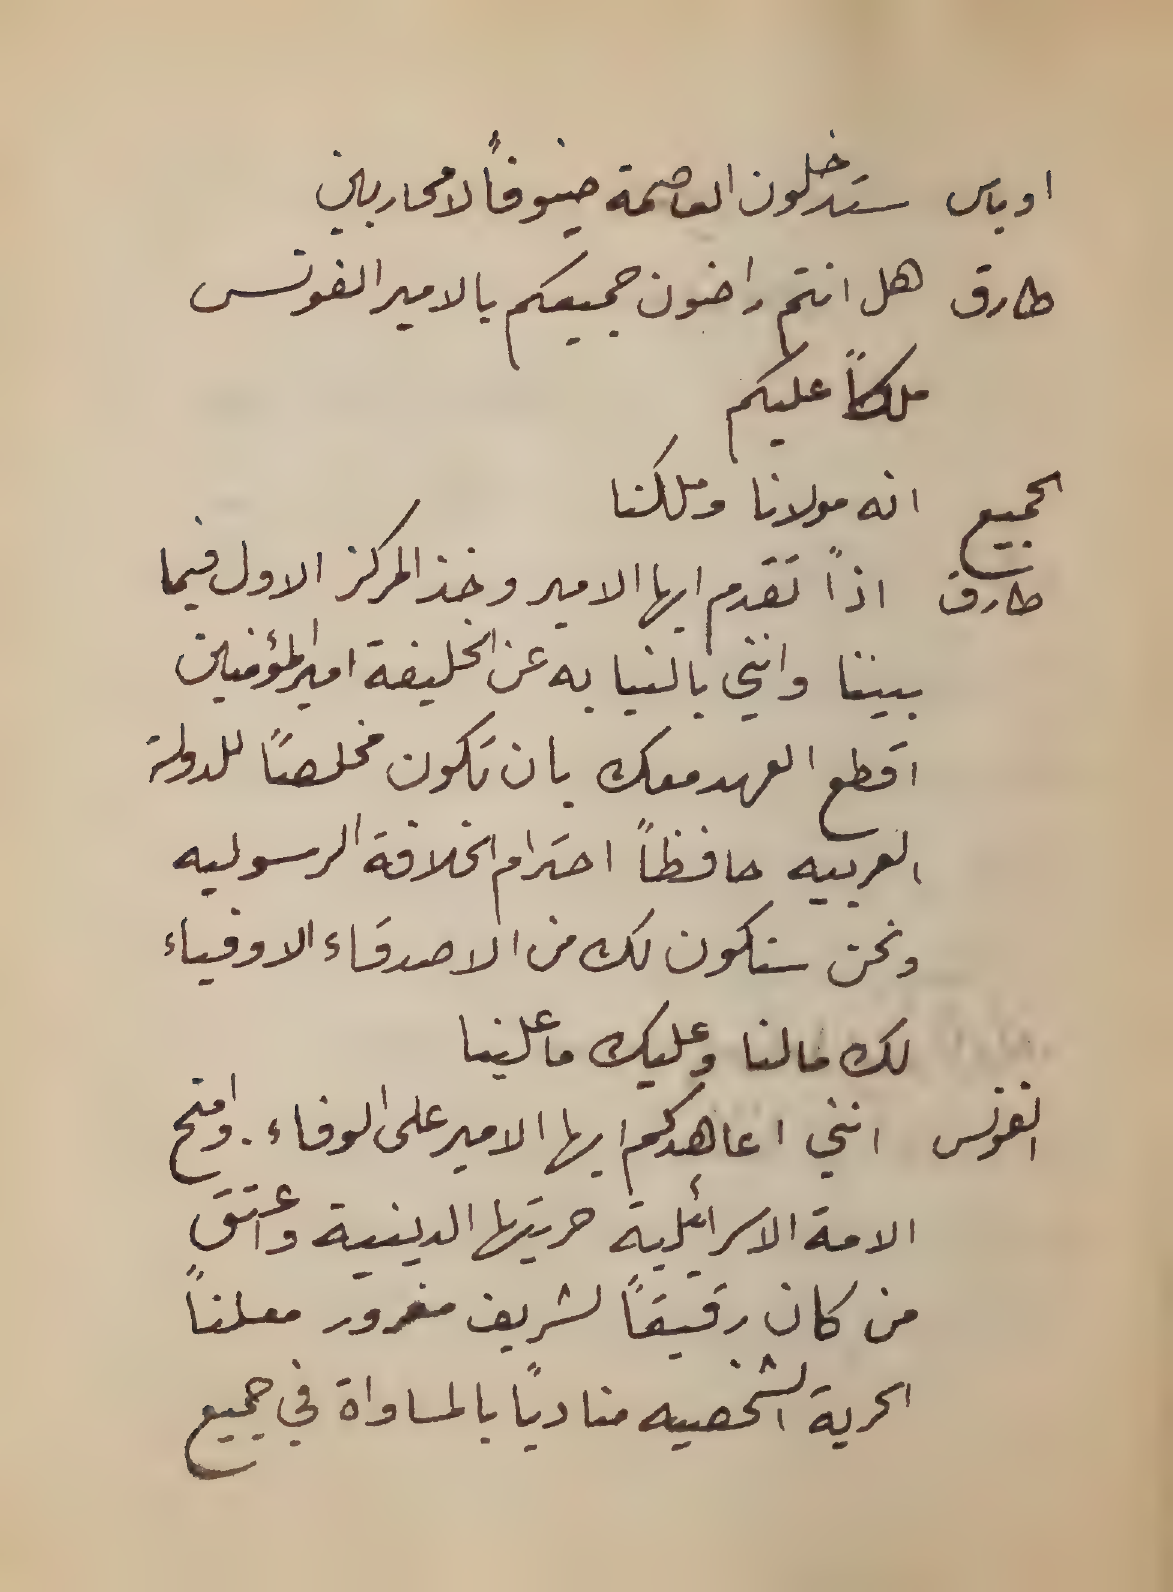 اوباس ستدخلون العاصمة ضيوفاً لا محاربين
طارق هل انتم راضون جميعكم بالامير الفونس
ملكاً عليكم
الجميع انه مولانا وملكنا
طارق اذاً تقدم ايها الامير وخذ المركز الاول فيما
بيننا وانني بالنيابه عن الخليفة امير المؤمنين
اقطع العهد معك بان تكون مخلصاً للدولة
العربيه حافظاً احترام الخلافة الرسوليه
ونحن سنكون لك من الاصدقاء الاوفياء
لك مالنا وعليك ما علينا
الفونس انني اعاهدكم ايها الامير على الوفاء. وامنح
الامة الاسرائيلية حريتها الدينية واعتق
من كان رقيقاً لشريف مغرور معلناً
الحرية الشخصيه مناديًا بالمساواة في جميع